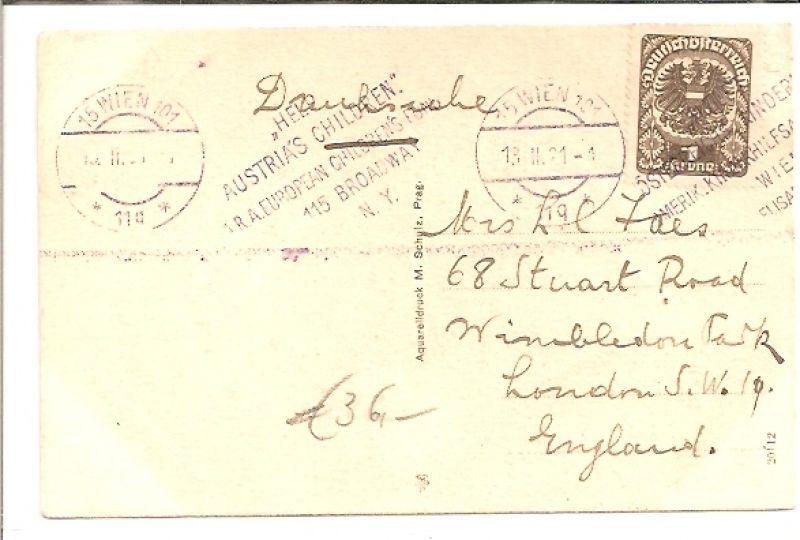 Drucksache
15 WIEN 101
13. II. 21 -
* 11g *
„HELP
AUSTRIA'S CHILDREN".
A.R.A. EUROPEAN CHILDREN'S
115 BROADWAY
N.Y.
15 WIEN 101
13. II. 21 - 4
* 11g *
Deutschösterreich
1
Krone
KINDER
ÖST
AMERIK. KINDERHILFSA
WIEN
ELISA
Aquarelldruck M. Schulz, Prag.
Mrs L. C.
68 Stuart Road
Wimbledon Park
London S.W. 19.
England.
€36,–
20f12